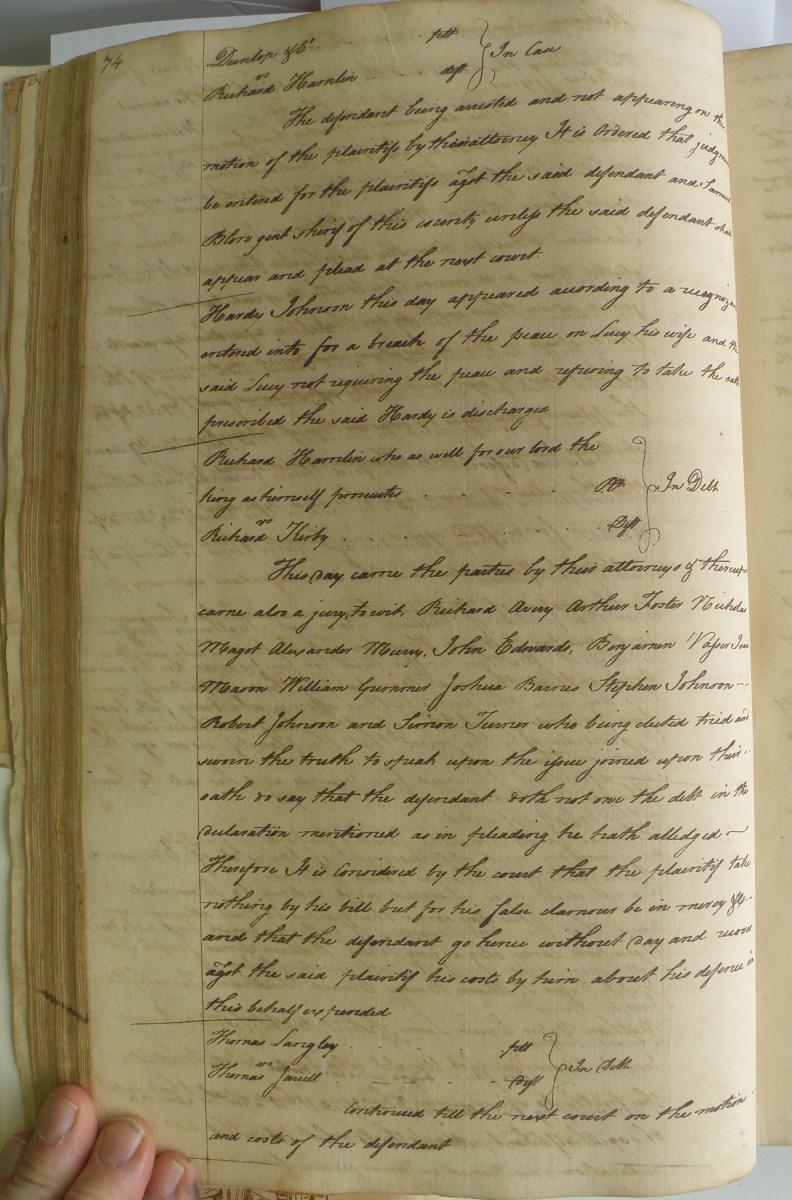 74
Dunlop &Co. pltt
vs } In Case
Richard Hamlin deft
The defendant being arrested and not appearing on the
motion of the plaintifs by their attorney It is Ordered that judgm
be entered for the plaintifs agst the said defendant and
Blow gent sherif of this county unless the said defendant shall
appear and plead at the next court.
Hardy Johnson this day appeared according to a recogniza
entered into for a breach of the peace on Lucy his wife and the
said Lucy not requiring the peace and refusing to take the oath
prescribed the said Hardy is discharged
Richard Hamlin who as well for our lord the
king as himself prosecutes Plt
vs } In Debt
Richard Kirby Deft
This day came the parties by their attorneys & thereupon
came also a jury, to wit, Richard Avery Arthur Foster Nicholas
Magot Alexander Murry, John Edwards, Benjamen Vasser
Mason William Grimmer Joshua Barnes Stephen Johnson
Robert Johnson and Simon Turner who being elected tried and
sworn the truth to speak upon the issue joined upon their
oath do say that the defendant doth not owe the debt in the
declaration mentioned as in pleading he hath alledged
Therefore It is Considered by the court that the plaintif take
nothing by his bill but for his false clamour be in mercy &c.
and that the defendant go hence without day and recover
agst the said plaintif his costs by him about his defence in
this behalf expended
Thomas Langley pltt
vs } In Debt
Thomas Jarrell Deft
Continued till the next court on the motion
and costs of the defendant